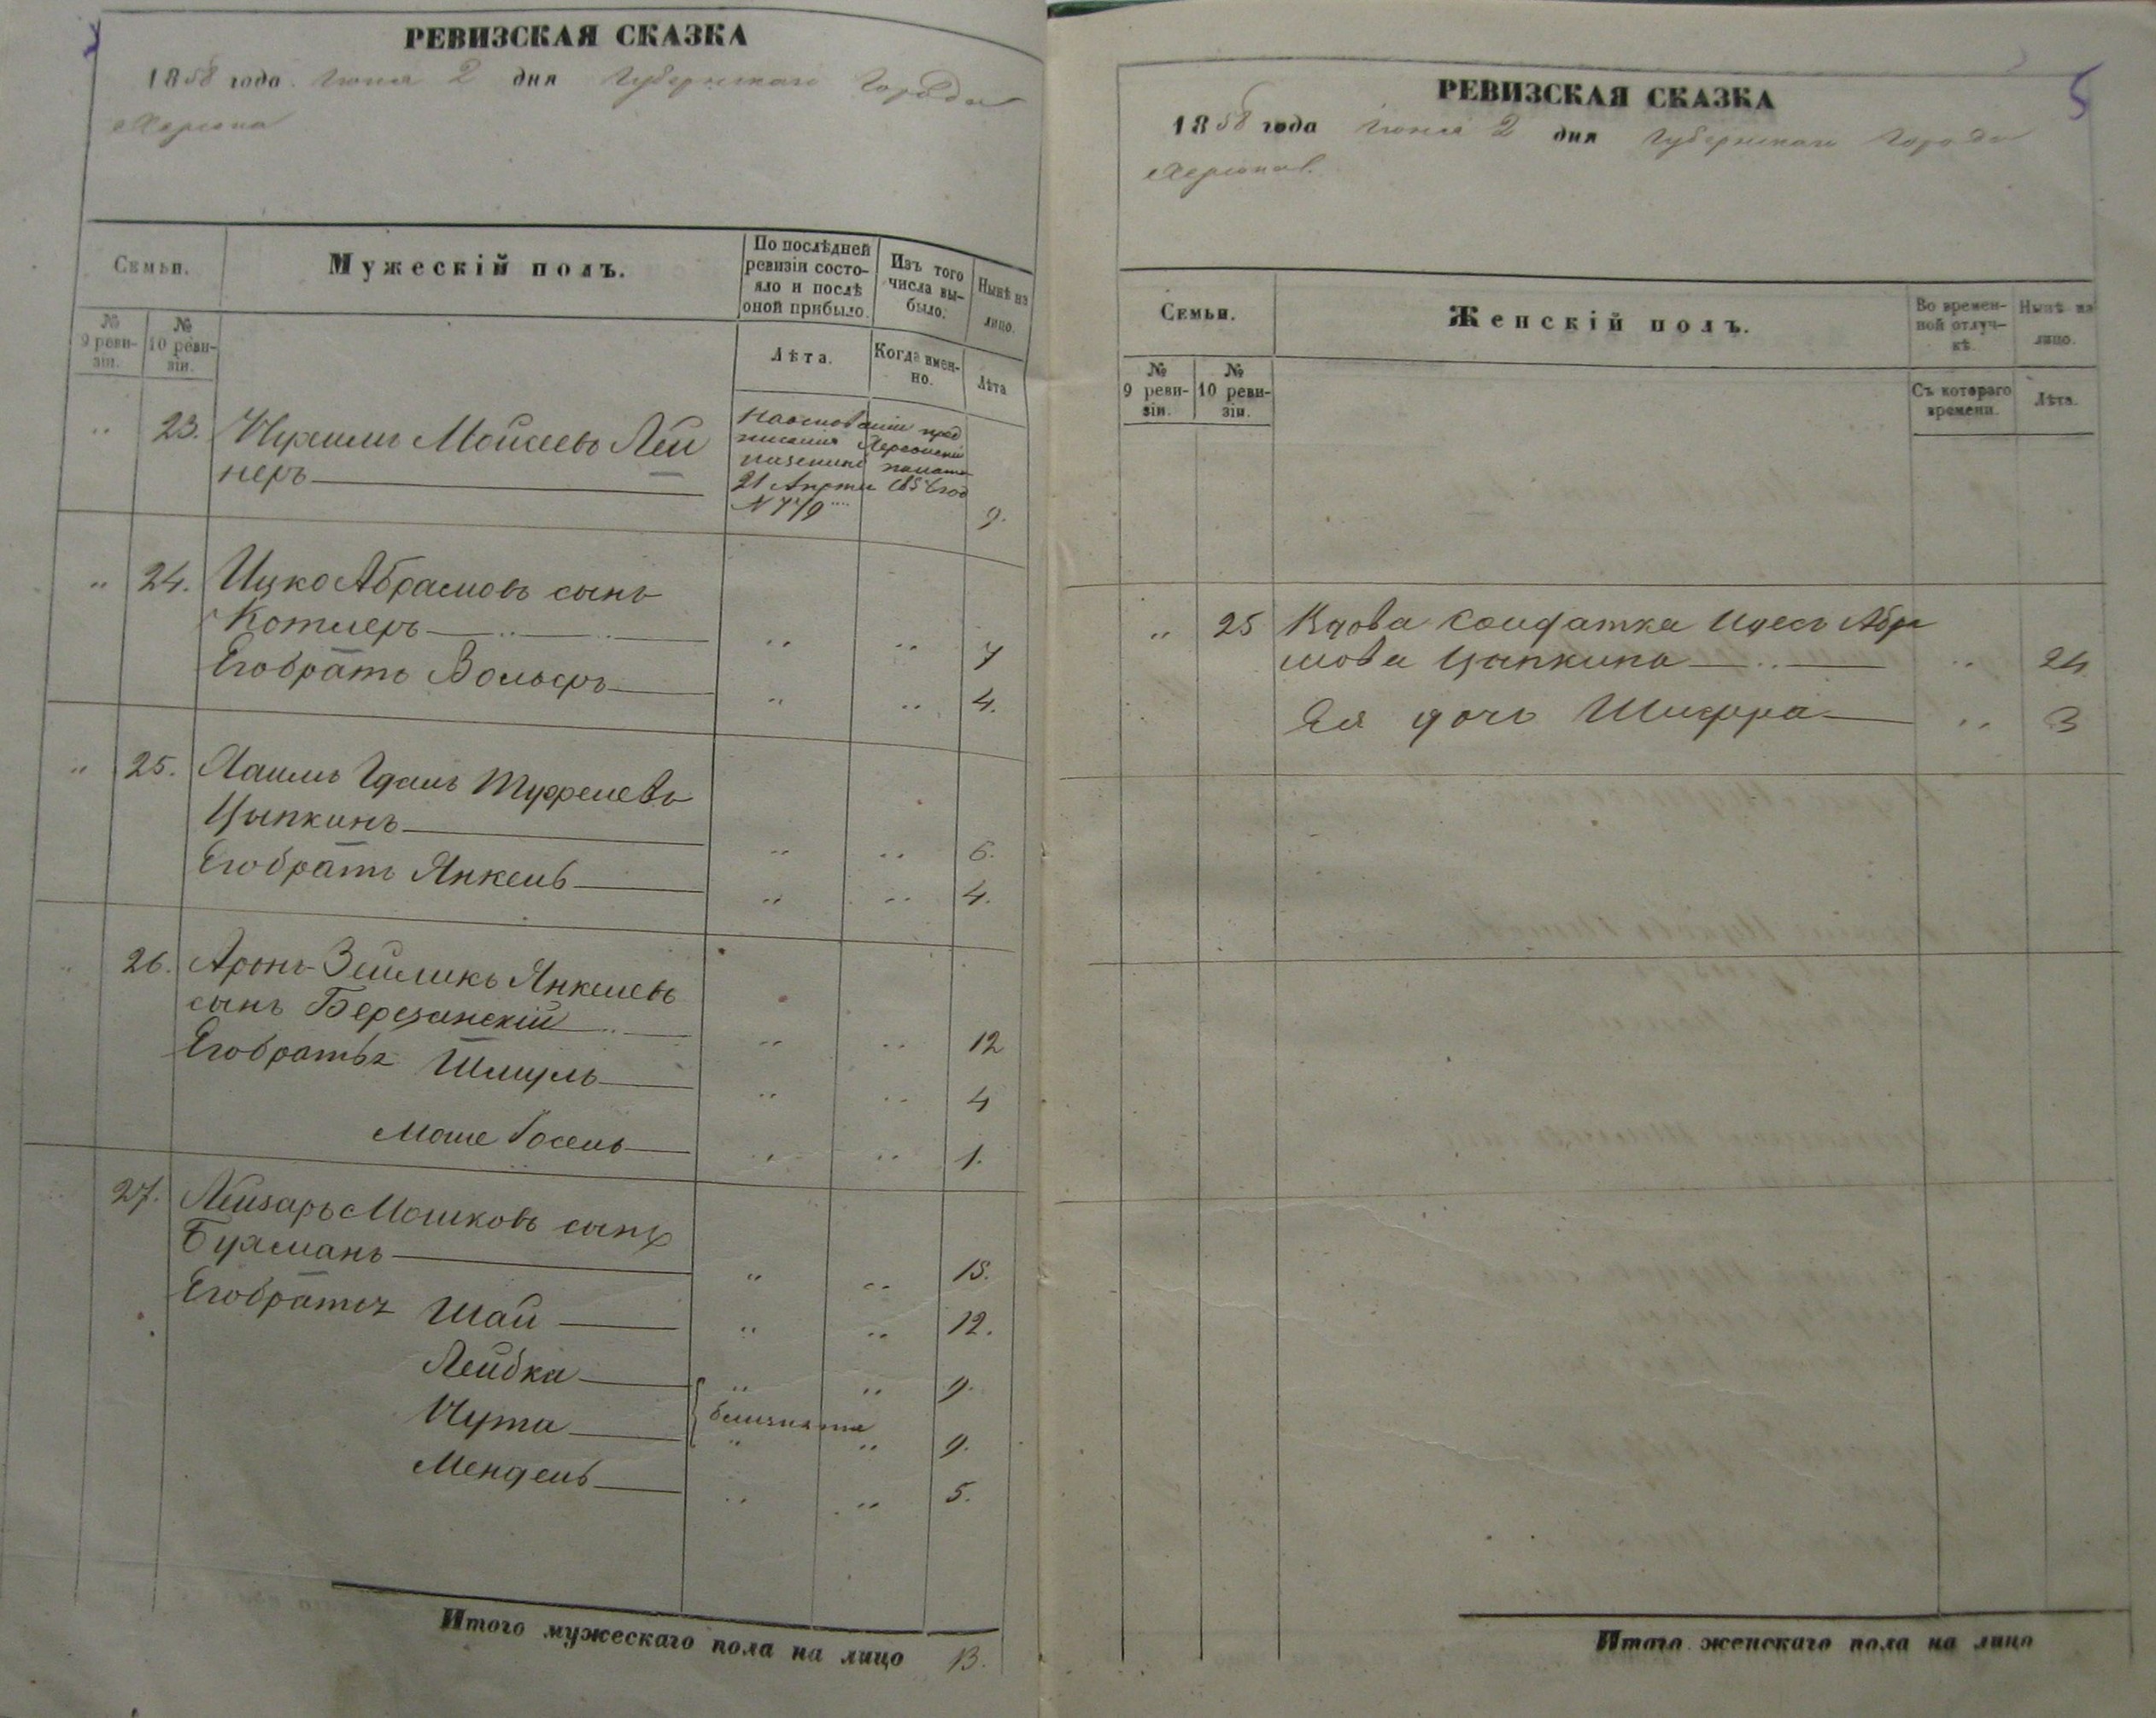 РЕВИЗСКАЯ СКАЗКА
1858 года Іюня 2 дня Губернскаго Города
Херсона
Семьи.
Мужескій полъ.
По послѣдней ревизіи состо-
яло и послѣ
оной прибыло.
Изъ того
числа вы-
было.
Нынѣ на
лицо.
№
9 реви-
зіи.
№
10 реви-
зіи.
Лѣта.
Когда имен-
но.
Лѣта
" 23. Моисеевъ Лей
неръ
На основаніи пред
писанія Херсонской
казенной палаты
21 Апрѣля
9.
" 24. Ицко Абрамовъ сынъ
Котлеръ " " 7
Его братъ Вольфъ " " 4.
" 25. Хаимъ Гдаль Туфелевъ
Цыпкинъ " " 6.
Его братъ Янкель " " 4.
" 26. Аронъ-Зейликъ Янкелевъ
сынъ Березанскій " " 12
Его братья Шмуль " " 4
Моше Госель " " 1.
27. Лейзаръ Мошковъ сынъ
Бухманъ " " 15.
Его братья Шай " " 12.
Лейбка " " 9.
близнята
Нута " " 9.
Мендель " " 5.
Итого мужескаго пола на лицо 13.
5
РЕВИЗСКАЯ СКАЗКА
1858 года Іюня 2 дня Губернскаго Города
Херсона.
Семьи.
Женскій полъ.
Во времен-
ной отлуч-
кѣ.
Нынѣ на
лицо.
№
9 реви-
зіи.
№
10 реви-
зіи.
Съ котораго
времени.
Лѣта.
" 25 Вдова солдатка Идесъ Абра
мова Цыпкина " 24
Ея дочь Шифра " 3
Итого женскаго пола на лицо